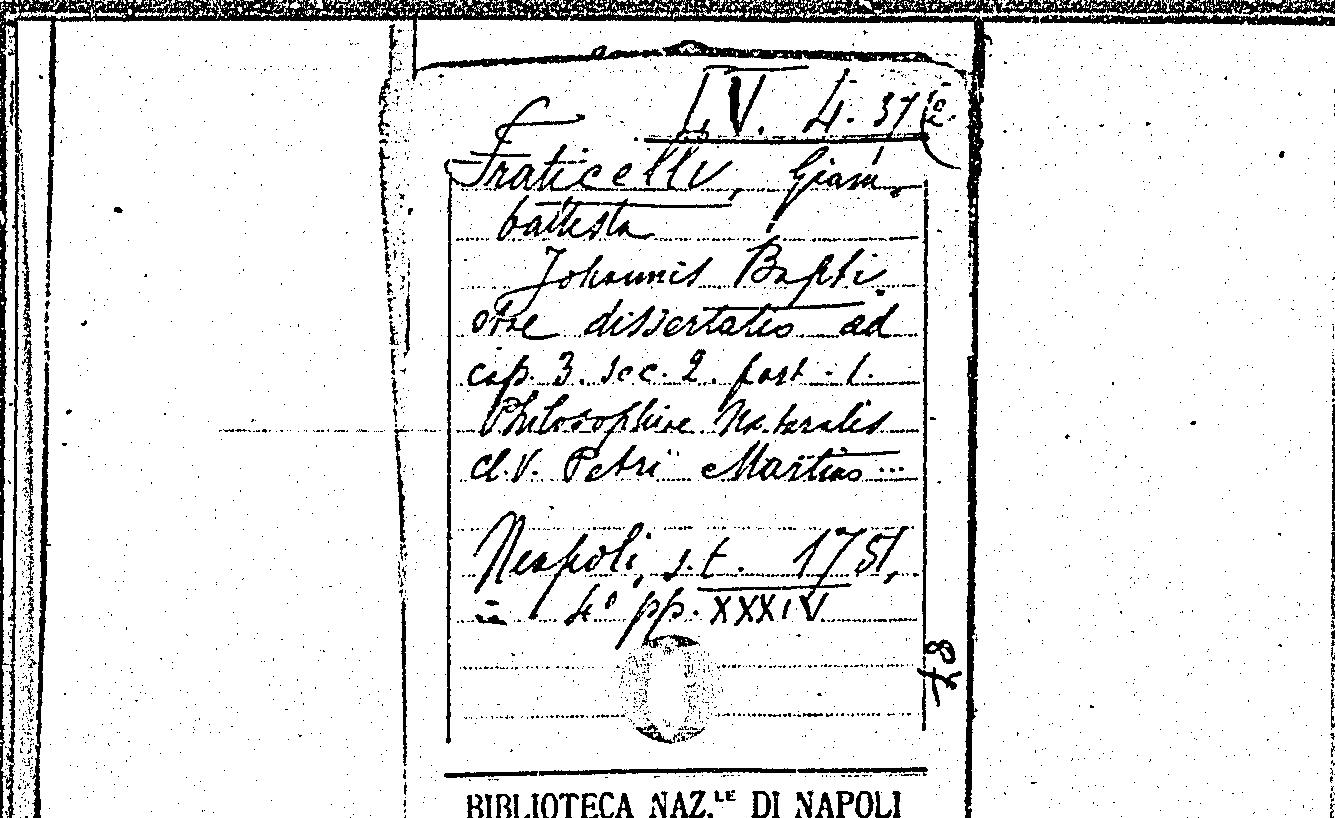 L.V. 4. 37
Fraticelli, Giam,
battista
Johannis Bapti.
stae dissertatio ad
cap. 3. sec. 2. part. 1.
Philosophiae Naturalis
cl. V. Petri Martino ...
Neapoli, s. t. 1751,
in 4º pp. XXXIV
78
BIBLIOTECA NAZ.LE DI NAPOLI